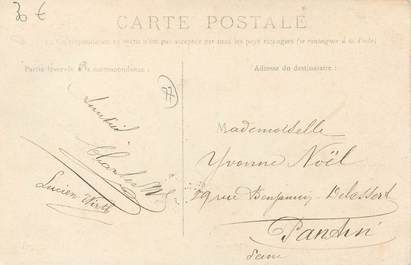 30 €
CARTE POSTALE
La Correspondance au recto n'est pas acceptée par tous les pays étrangers (se renseigner à la Poste)
Partie réservée à la correspondance
Adresse du destinataire
77
Amitié
Charles
Lucien Wirth
Mademoiselle
Yvonne Noël
29 rue Benjamin Delessert
Pantin
Seine